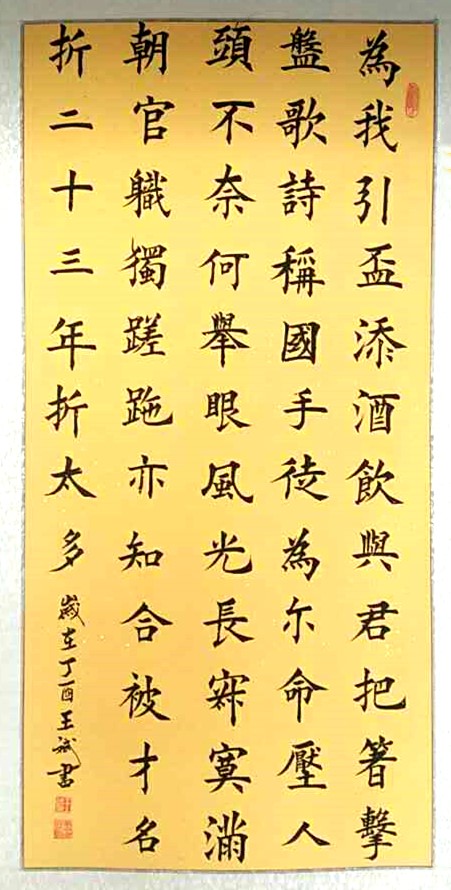 為我引盃添酒飲與君把箸擊
盤歌詩稱國手徒為尔命壓人
頭不奈何舉眼風光長寂寞滿
朝官職獨蹉跎亦知合被才名
折二十三年折太多
歲在丁酉王斌書